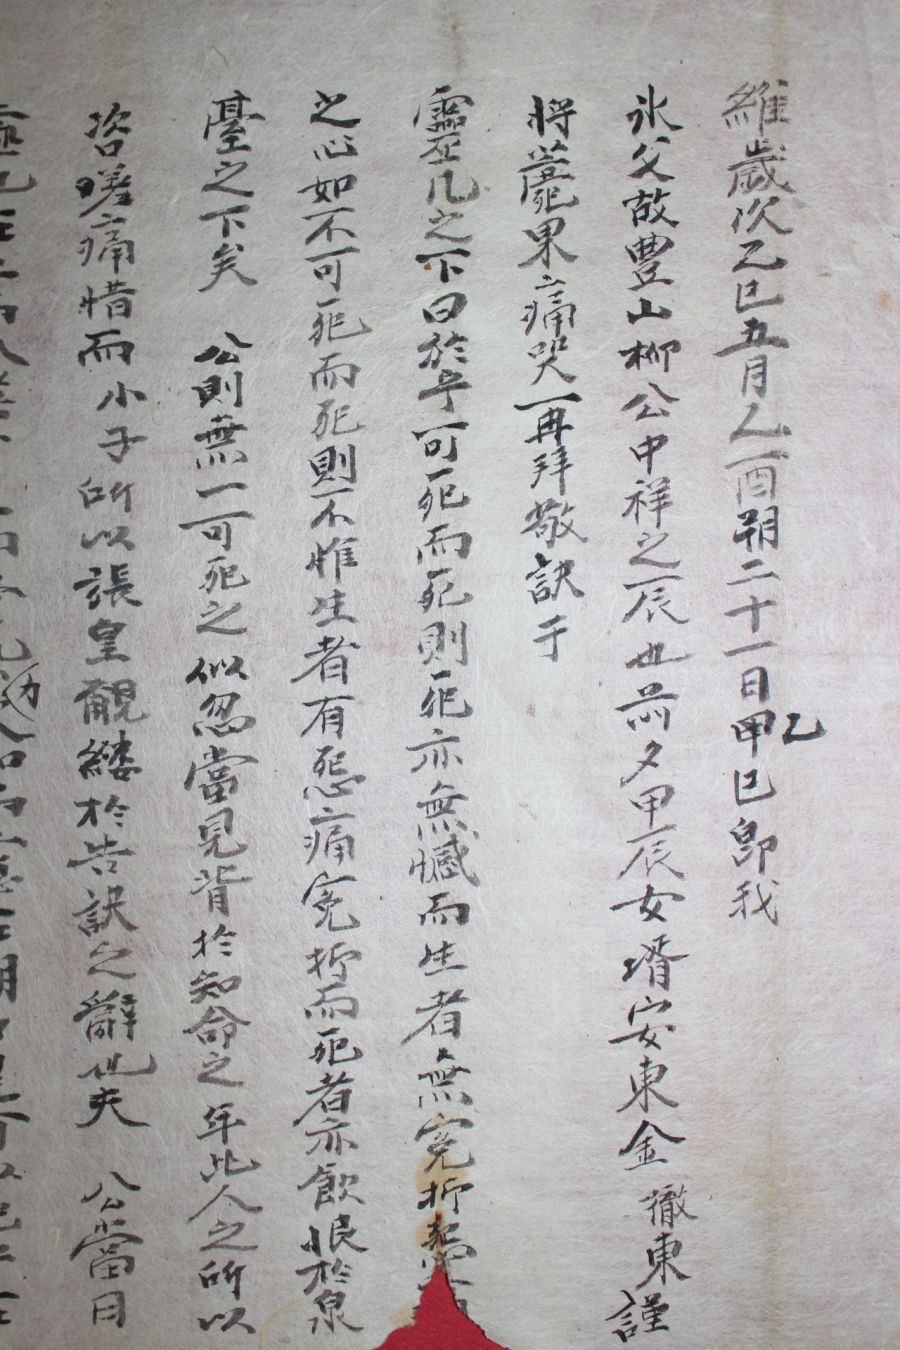 維歲次乙巳五月乙酉朔二十一日甲乙巳卽我
氷父故豊山柳公中祥之辰也前夕甲辰女壻安東金 徹東謹
將菲果痛哭一再拜敬訣于
靈几之下曰於乎可死而死則死亦無憾而生者無寃折
之心如不可死而死則不惟生者有怨痛寃折而死者亦飮恨於泉
臺之下矣 公則無一可死之似忽當見背於知命之年此人之所以
咨嗟痛惜而小子所以張皇覶縷於告訣之辭也夫 公當日